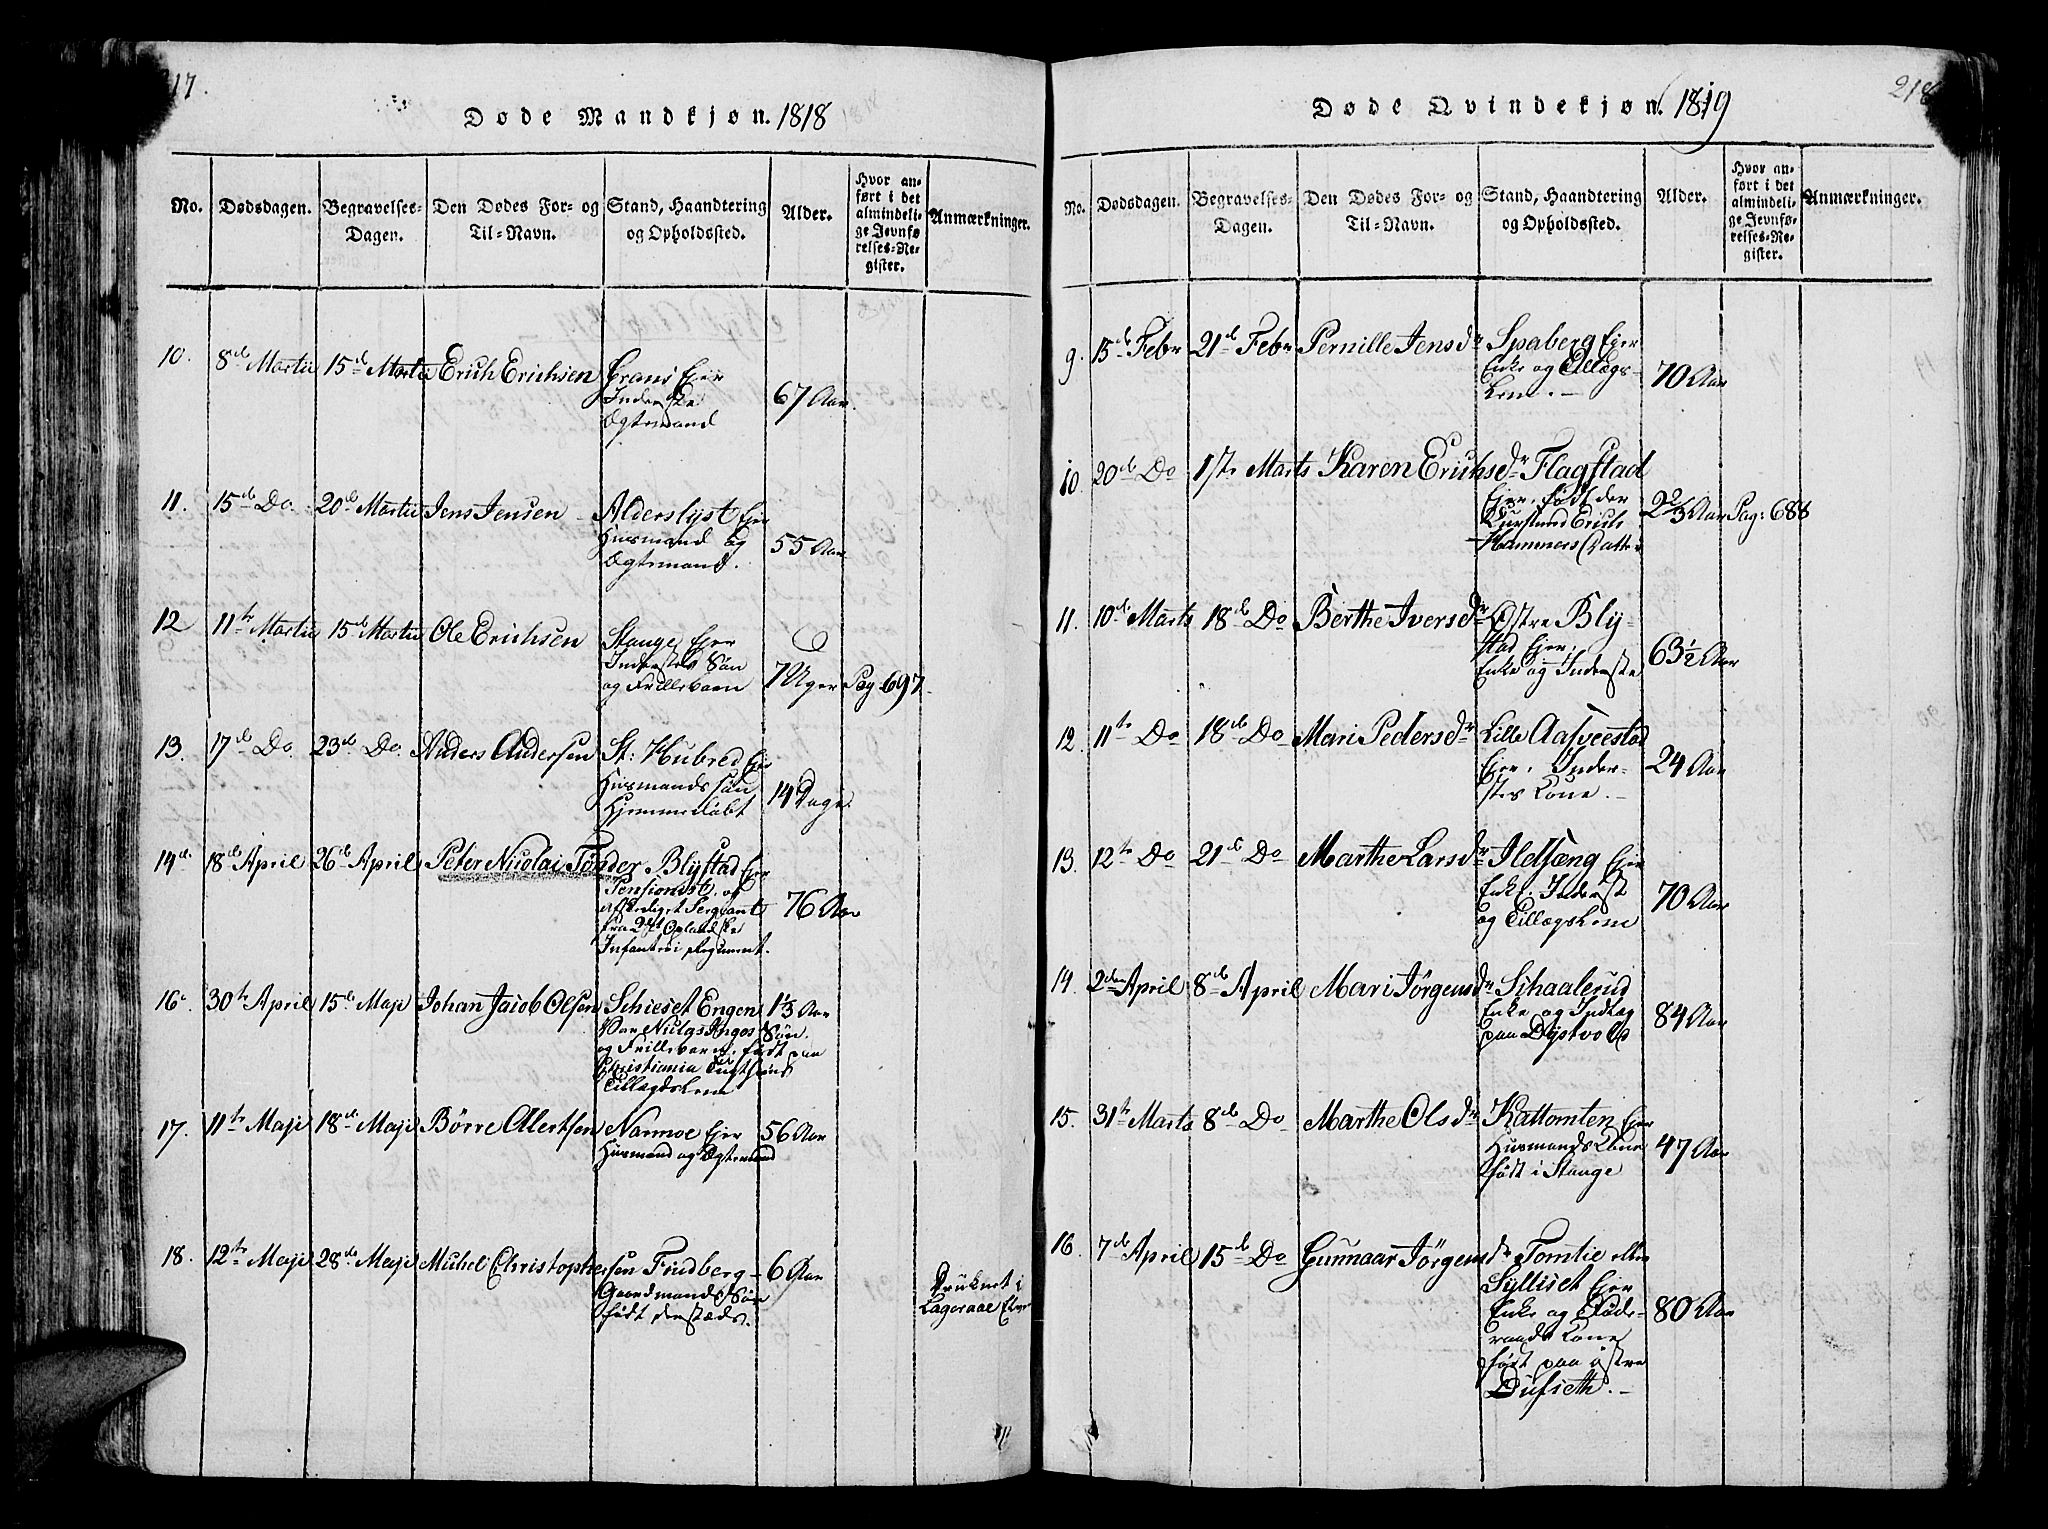 17.
Døde Mandkjøn. 1818
No.
Dødsdagen.
Begravelses-
Dagen.
Den Dødes For- og
Til-Navn.
Stand, Haandtering
og Opholdssted.
Alder.
Hvor an-
ført i det
almindeli-
ge Jevnfø-
relses-Re-
gister.
Anmærkninger.
10. 8de Martii 15de Martii Erich Erichsen
Ejer
Inderste
Ægtemand
67 Aar.
11. 15de Do. 20de Martii Jens Jensen
Alderslyst Ejer
Huusmand og
Ægtemand.
55 Aar
12 11te Martii 15de Martii Ole Erichsen
Stange Ejer
Inderstes Søn
og Frillebarn
7 Uger Pag. 697.
13. 17de Do. 23de Do. Anders Andersen
St: Hubred Ejer
Huusmands Søn
Hjemmedøbt
14 Dage.
14de. 18de April 26de April Peter Nicolai Tønder
Blystad Ejer
Pensionist, og
afskediget Sergeant
fra 2det Oplandske
Infanteri Regiment.
76 Aar
16. 30te April 15de Maji Johan Jacob Olsen
Schieset Engen
og Frillebarn, født paa
Christiania Tugthuus
Tillægslem
1⅓ Aar
17. 11te Maji 18de Maji Børre Alertsen
Narmoe Ejer
Huusmand og Ægtemand
56 Aar
18. 12te Maji 28de Maji Michel Christophersen
Findberg
Gaardmands Søn
født densteds.
6 Aar
Druknet i
Lageraae Elver
218
Døde Qvindekjøn. 1819
No.
Dødsdagen.
Begravelses-
Dagen.
Den Dødes For- og
Til-Navn.
Stand, Haandtering
og Opholdssted.
Alder.
Hvor an-
ført i det
almindeli-
ge Jevnfø-
relses-Re-
gister.
Anmærkninger.
9. 15de Febr 21de Febr Pernille Jensdr
Spaberg Ejer
Enke og Tillægs-
Lem.
70 Aar
10. 20de Do 1ste Marts Karen Erichsdr
Flagstad
Ejer, født der
Erich
Hammers Datter
2⅔ Aar Pag: 688
11. 10de Marts 18de Do Berthe Iversdr
Østre Bly-
stad Ejer,
Enke og Inderste
63½ Aar
12. 11te Do 18de Do Mari Pedersdr
Lille Aasveestad
Ejer, Inder-
stes Kone.
24 Aar
13. 12te Do 21de Do Marthe Larsdr
Ildsæng Ejer
Enke, Inderst
og Tillægslem
70 Aar
14. 2den April 8de April Mari Jørgensdr
Schaalerud
Enke og Indlæg
paa Dystvold
84 Aar
15. 31te Marts 8de Do Marthe Olsdr
Kattomten Ejer
Huusmands Kone
født i Stange
47 Aar
16. 7de April 15de Do Gunnaar Jørgensdr
Tomtie eller
Sylliset Ejer
Enke og Føde-
raads Kone
født paa østre
Dufseth.
80 Aar